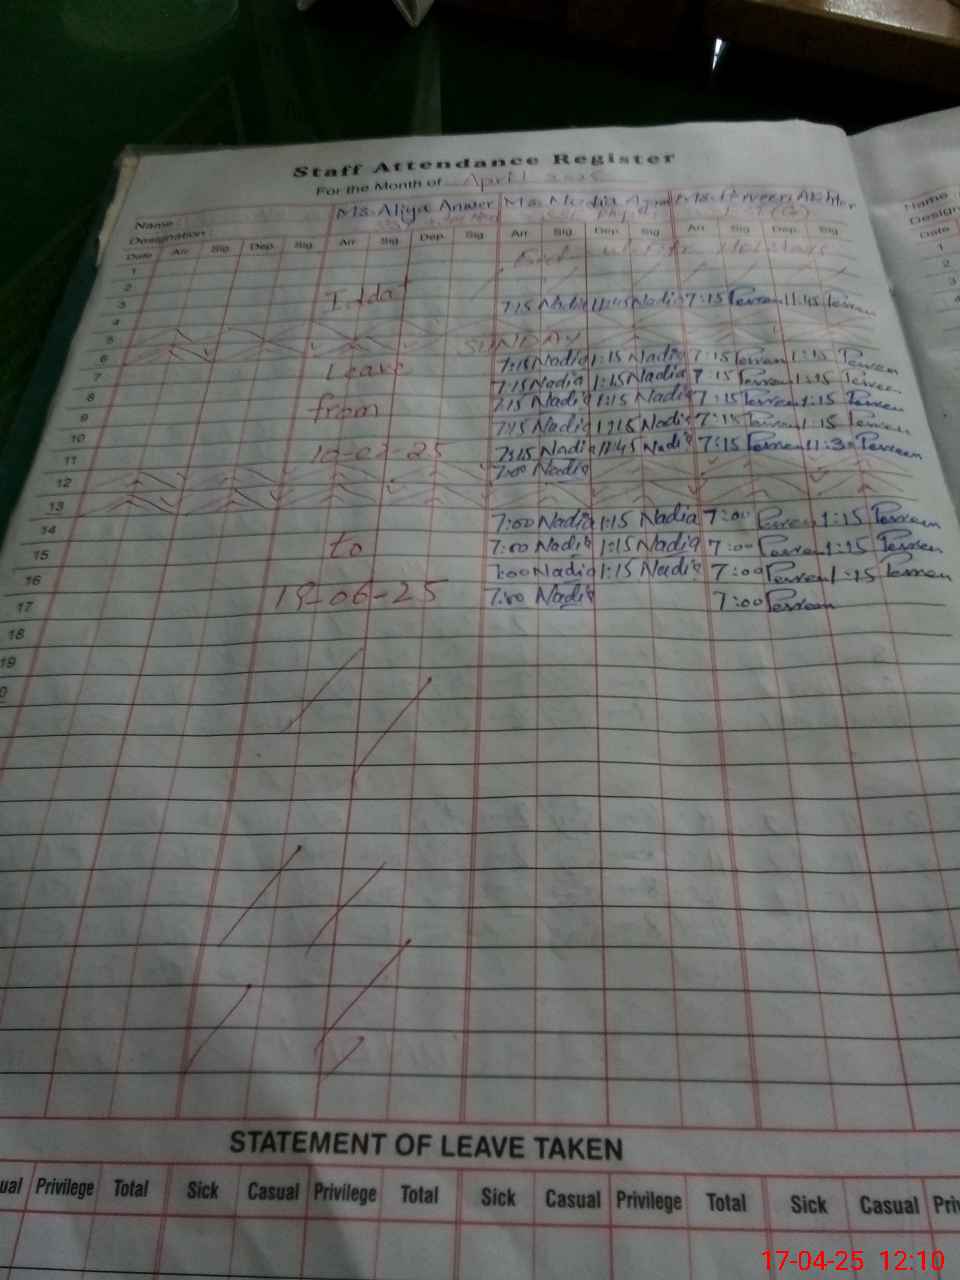 Staff Attendance Register
For the Month of April 2025
Name Ms. Aliya Anwer Ms. Nadia Ms. Perveen Akhter
Designation
Date Arr. Sig. Dep. Sig. Arr. Sig. Dep. Sig. Arr. Sig. Dep. Sig. Arr. Sig. Dep. Sig.
1 Holidays
2
3 Iddat 7:15 Nadia 11:45 Nadia 7:15 Perveen 11:45 Perveen
4
5 SUNDAY
6 Leave 7:15 Nadia 1:15 Nadia 7:15 Perveen 1:15 Perveen
7 7:15 Nadia 1:15 Nadia 7:15 Perveen 1:15 Perveen
8 from 7:15 Nadia 1:15 Nadia 7:15 Perveen 1:15 Perveen
9 Nadia Nadia 7:15 Perveen 1:15 Perveen
10 -25 Nadia 11:45 Nadia 7:15 Perveen 11:30 Perveen
11 7:00 Nadia
12
13
14 7:00 Nadia 1:15 Nadia 7:00 Perveen 1:15 Perveen
15 to 7:00 Nadia 1:15 Nadia 7:00 Perveen 1:15 Perveen
16 7:00 Nadia 1:15 Nadia 7:00 Perveen 1:15 Perveen
17 19-06-25 7:00 Nadia 7:00 Perveen
18
19
STATEMENT OF LEAVE TAKEN
ual Privilege Total Sick Casual Privilege Total Sick Casual Privilege Total Sick Casual Priv
Name
Design
Date
1
2
3
4
17-04-25 12:10